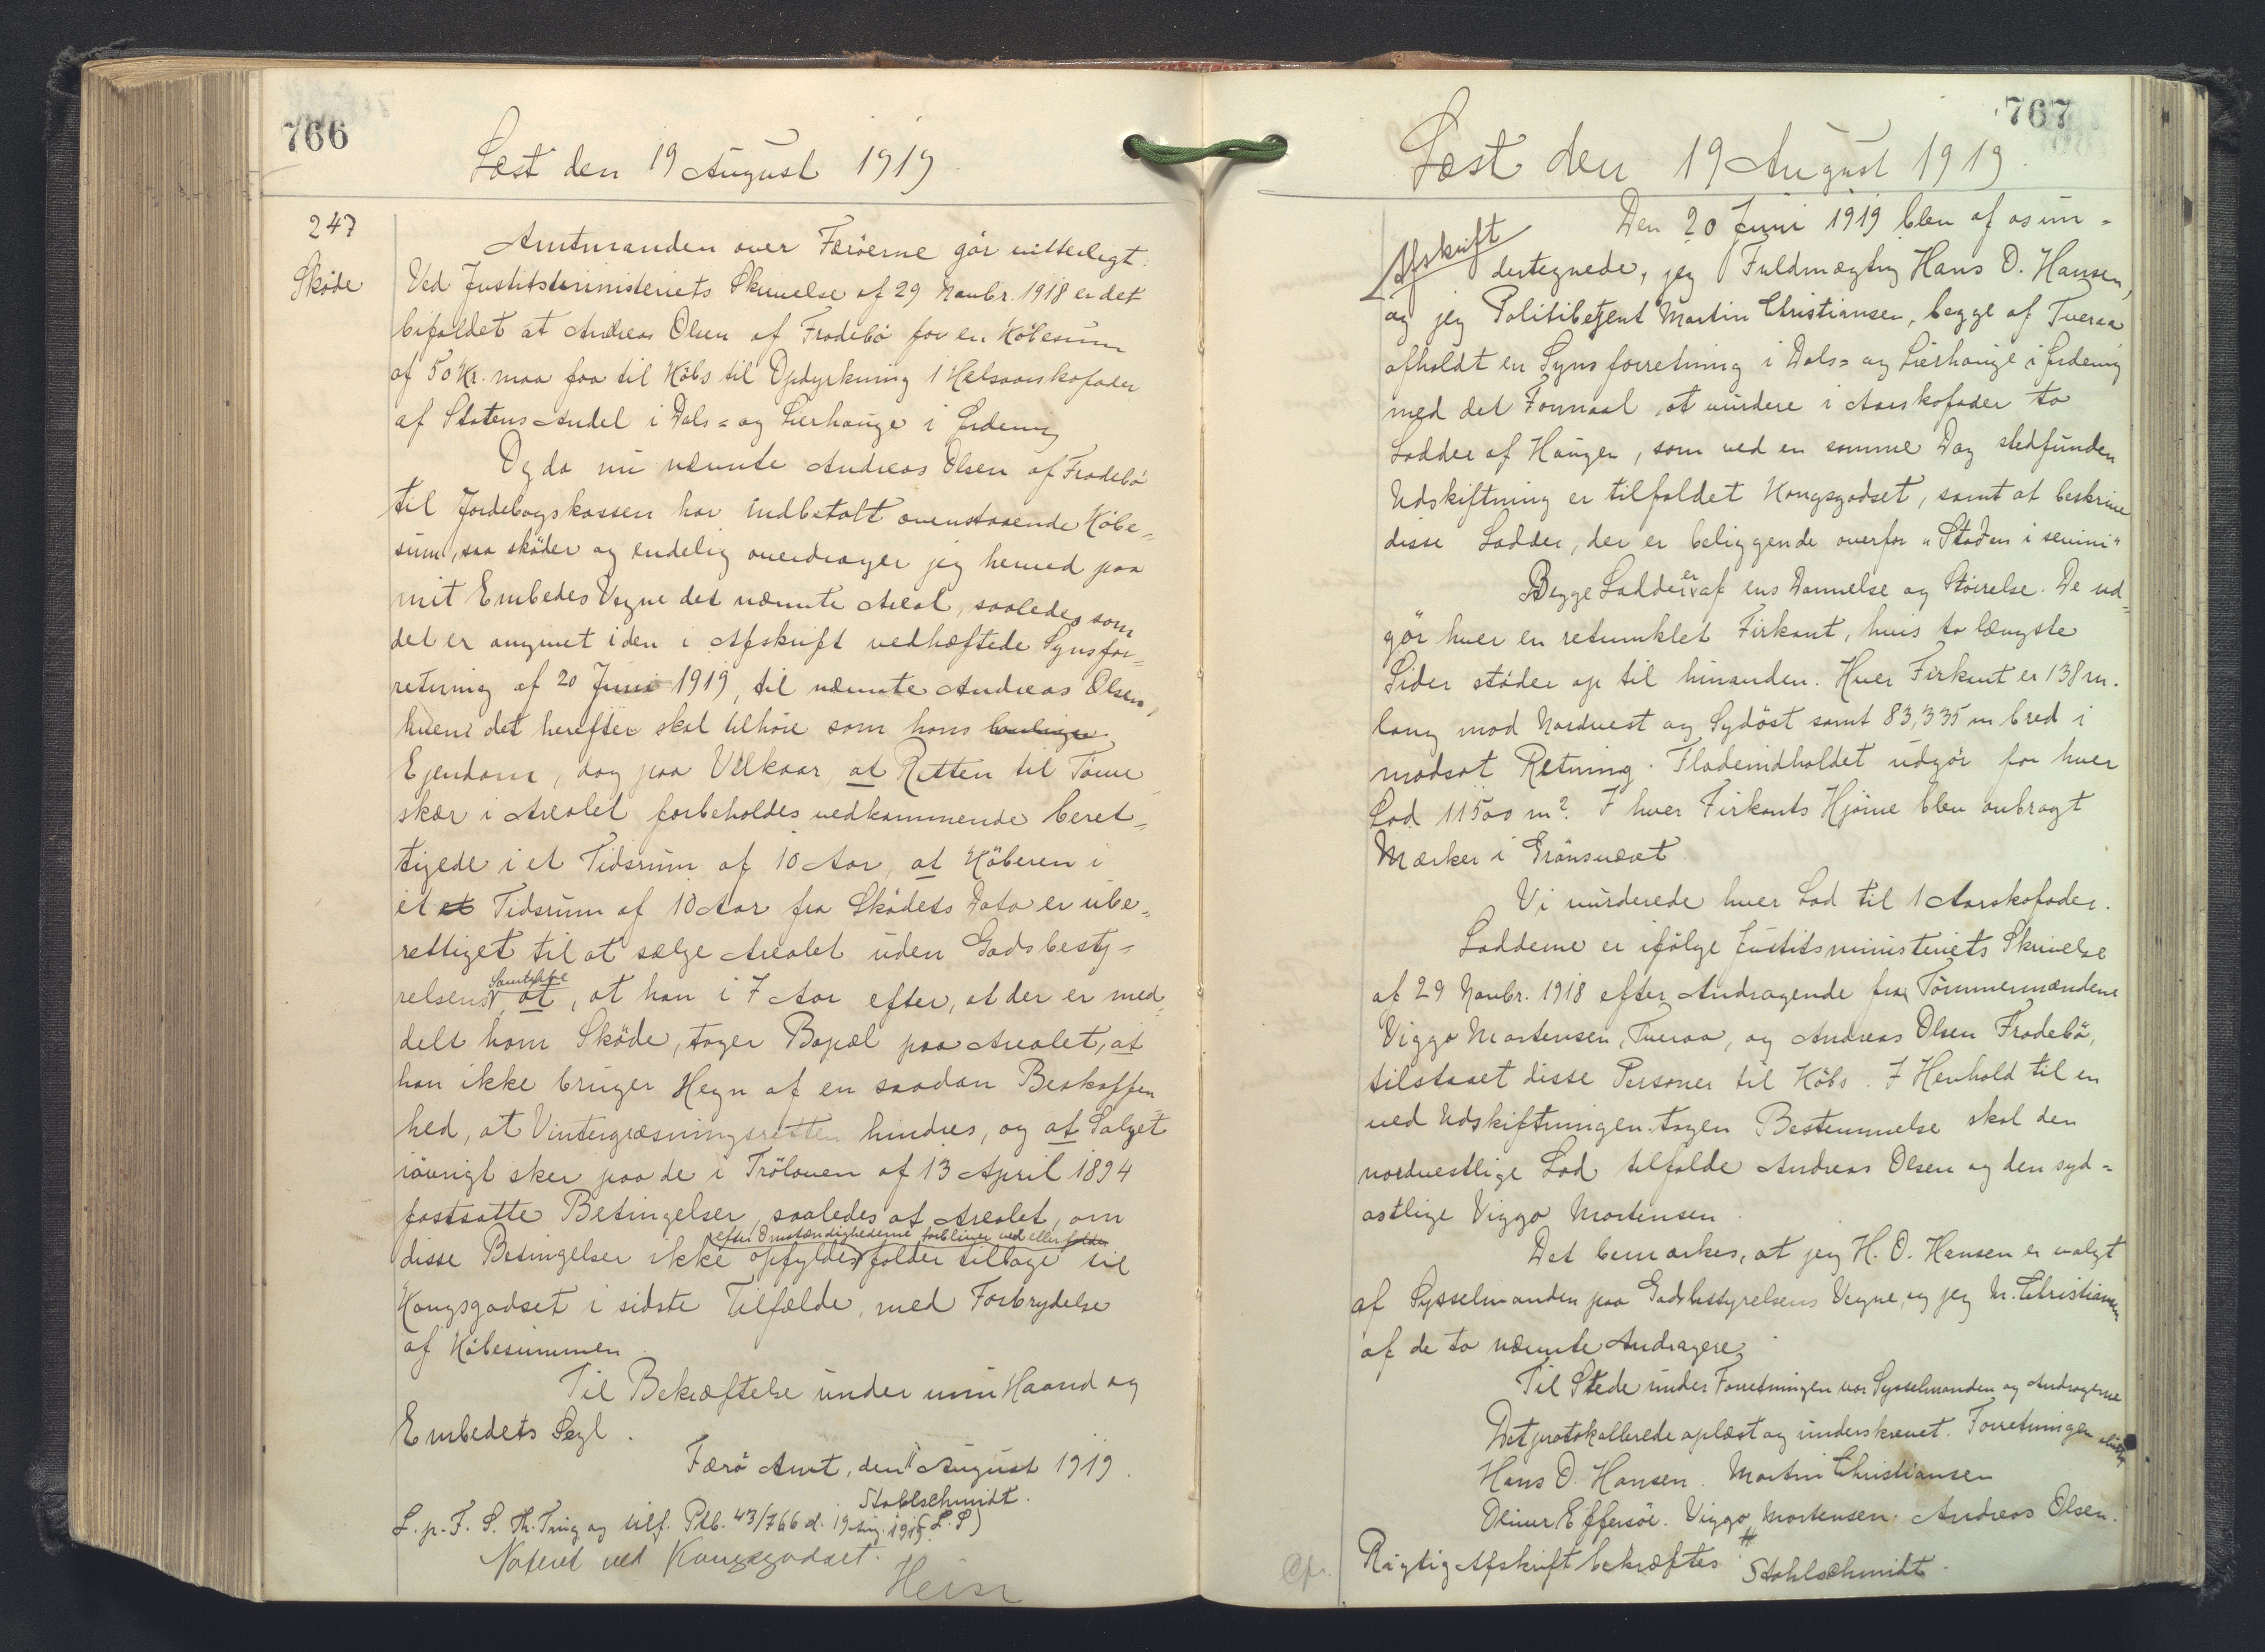 766
Læst den 19 August 1919
247
Skøde
Amtmanden over Færöerne gör vitterligt:
Ved Justitsministeriets Skrivelse af 29 Novbr. 1918 er det
bifaldet at Andreas Olsen af Frodebö for en Köbesum
af 50 Kr. maa faa til Köbs til Opdyrkning 1 Helsaarskofoder
af Statens Andel i Dals= og Lierhauge i
Og da nu nævnte Andreas Olsen af Frodebö
til Jordebogskassen har indbetalt ovenstaaende Köbe=
sum, saa sköder og endelig overdrager jeg herved paa
mit Embedes Vegne det nævnte Areal, saaledes som
det er angivet i den i Afskrift vedhæftede Synsfor=
retning af 20 Juni 1919, til nævnte Andreas Olsen,
hvem det herefter skal tilhöre som hans
Ejendom, dog paa Vilkaar, at Retten til Törve
skær i Arealet forbeholdes vedkommende beret=
tigede i et Tidsrum af 10 Aar, at Köberen i
et et Tidsrum af 10 Aar fra Sködets Dato er ube=
rettiget til at sælge Arealet uden Godsbesty=
relsens Samtykke at, at han i 7 Aar efter, at der er med=
delt ham Sköde, tager Bopæl paa Arealet, at
han ikke bruger Hegn af en saadan Beskaffen
hed, at Vintergræsningsretten hindres, og at Salget
iövrigt sker paa de i Tröloven af 13 April 1894
fastsatte Betingelser, saaledes at Arealet, om
efter Omstændighederne forbliver ved eller falder
disse Betingelser ikke opfyldes falder tilbage til
Kongsgodset i sidste Tilfælde, med Forbrydelse
af Köbesummen
Til Bekræftelse under min Haand og
Embedets Segl.
Færö Amt, den August 1919.
Stahlschmidt.
L. p. F. S. Th. Ting og tilf. Ptb. 43/766 d. 19 Aug. 1919. L. S)
Noteret ved Kongsgodset.
Heise
767
Læst den 19 August 1919.
Afskrift
Den 20 Juni 1919 blev af os un=
dertegnede, jeg Fuldmægtig Hans D. Hansen,
og jeg Politibetjent Martin Christiansen, begge af Tveraa
afholdt en Synsforretning i Dals= og Lierhauge i
med det Formaal, at vurdere i Aarskofoder to
Lodder af Haugen, som ved en samme Dag stedfunden
Udskiftning er tilfaldet Kongsgodset, samt at beskrive
disse Lodder, der er beliggende overfor
Begge Lodder er af ens Dannelse og Störrelse. De ud=
gör hver en retvinklet Firkant, hvis to længste
Sider stöder op til hinanden. Hver Firkant er 138 m.
lang mod Nordvest og Sydöst samt 83,335 m bred i
modsat Retning. Fladeindholdet udgör for hver
Lod 11500 m². I hver Firkants Hjörne blev anbragt
Mærker i Grönsværet
Vi vurderede hver Lod til 1 Aarskofoder.
Lodderne er ifölge Justitsministeriets Skrivelse
af 29 Novbr. 1918 efter Andragende fra Tömmermændene
Viggo Mortensen, Tveraa, og Andreas Olsen Frodebö,
tilstaaet disse Personer til Köbs. I Henhold til en
ved Udskiftningen tagen Bestemmelse skal den
nordvestlige Lod tilfalde Andreas Olsen og den syd=
ostlige Viggo Mortensen.
Det bemærkes, at jeg H. D. Hansen er valgt
af Sysselmanden paa Godsbestyrelsens Vegne, og jeg M. Christiansen
af de to nævnte Andragere.
Til Stede under Forretningen var Sysselmanden og Andragerne
Det protokollerede oplæst og underskrevet. Forretningen sluttet
Hans D. Hansen. Martin Christiansen
Oliver Effersöe. Viggo Mortensen. Andreas Olsen.
Rigtig Afskrift bekræftes
Stahlschmidt.